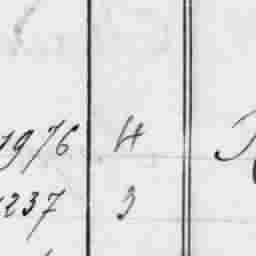 1976 4
1237 3